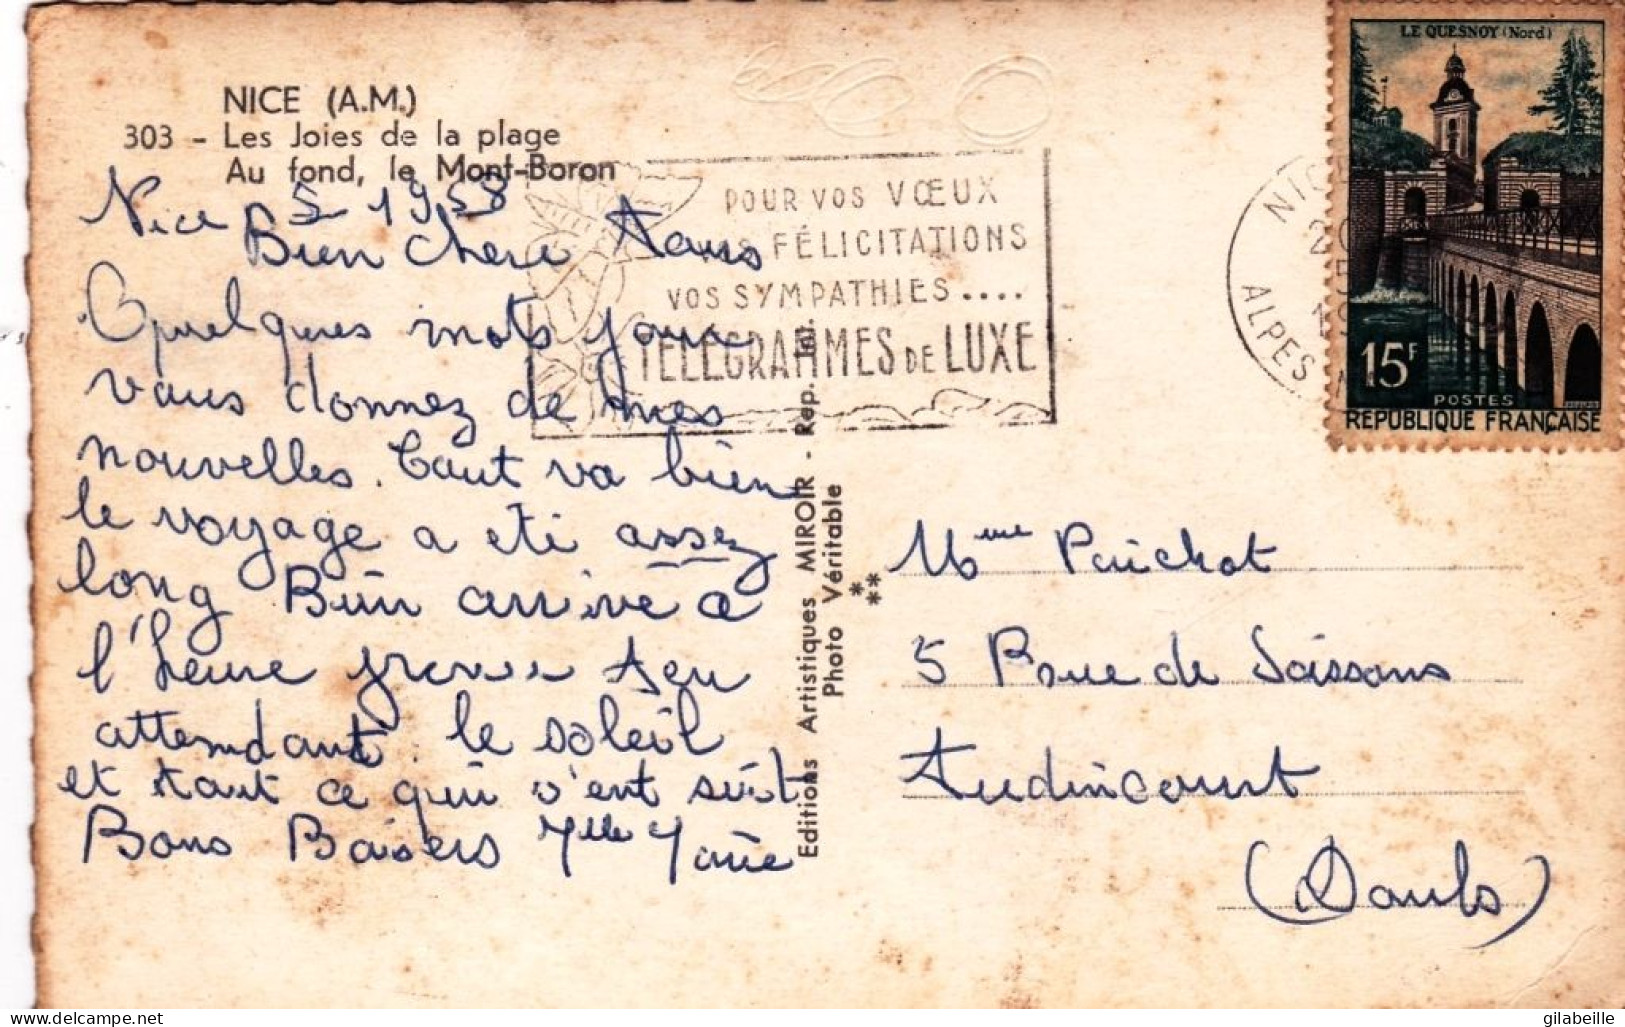 NICE (A.M.)
303 - Les Joies de la plage
Au fond, le Mont-Boron
Nice 5 1958
Bien chere Tous
Quelques mots pour
vous donnez de mes
nouvelles. Tout va bien
le voyage a eté assez
long Bien arrivé a
l'heure
attendant le soleil
et tout ce qui s'ent suit
Bons Baisers Mlle
POUR VOS VŒUX
VOS FÉLICITATIONS
VOS SYMPATHIES....
TÉLÉGRAMMES DE LUXE
Editions Artistiques MIROIR - Rep. Int.
Photo Véritable
NICE
20
5
19
ALPES M
LE QUESNOY (Nord)
15F
POSTES
REPUBLIQUE FRANÇAISE
Mme Paichot
5 Rue de Soissons
Audincourt
(Doubs)
delcampe.net
gilabeille